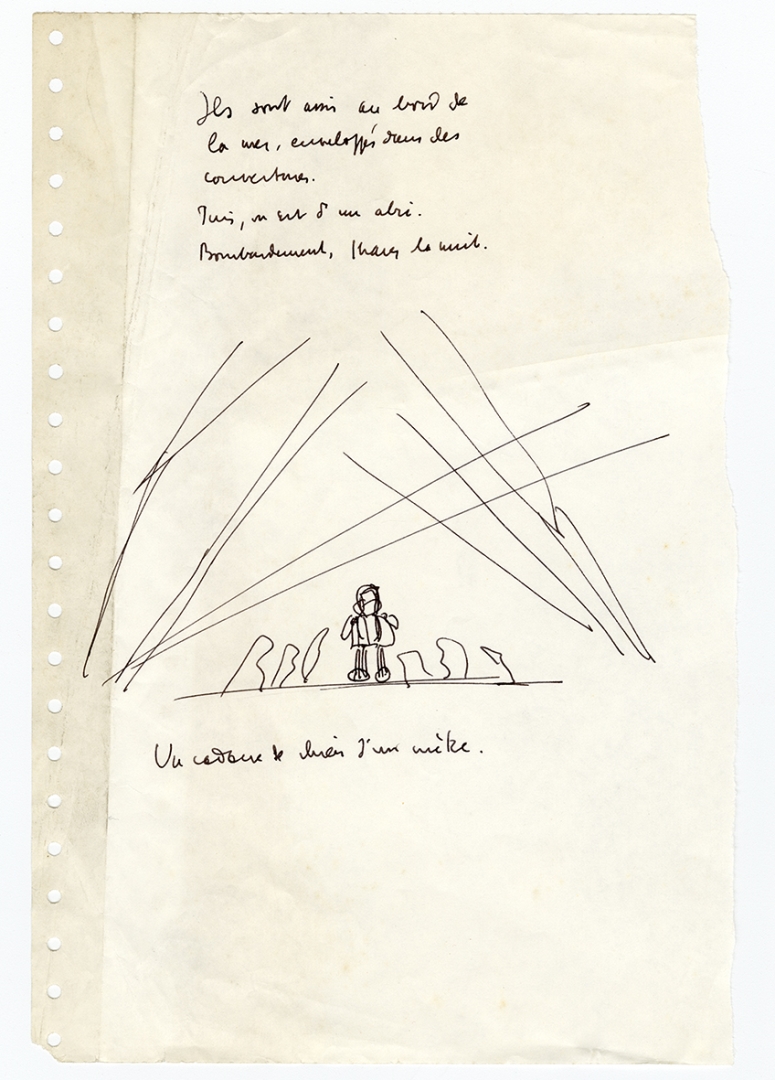 Ils sont assis au bord de
la mer, enveloppés dans des
couvertures.
un abri.
Bombardement, la nuit.
Un cadavre de chien d'un mètre.